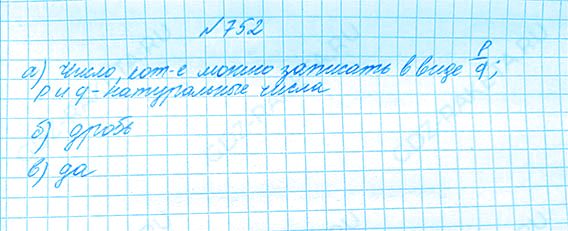 №752
а) Число, кот-е можно записать в виде p/q;
p и q - натуральные числа
б) дробь
в) да